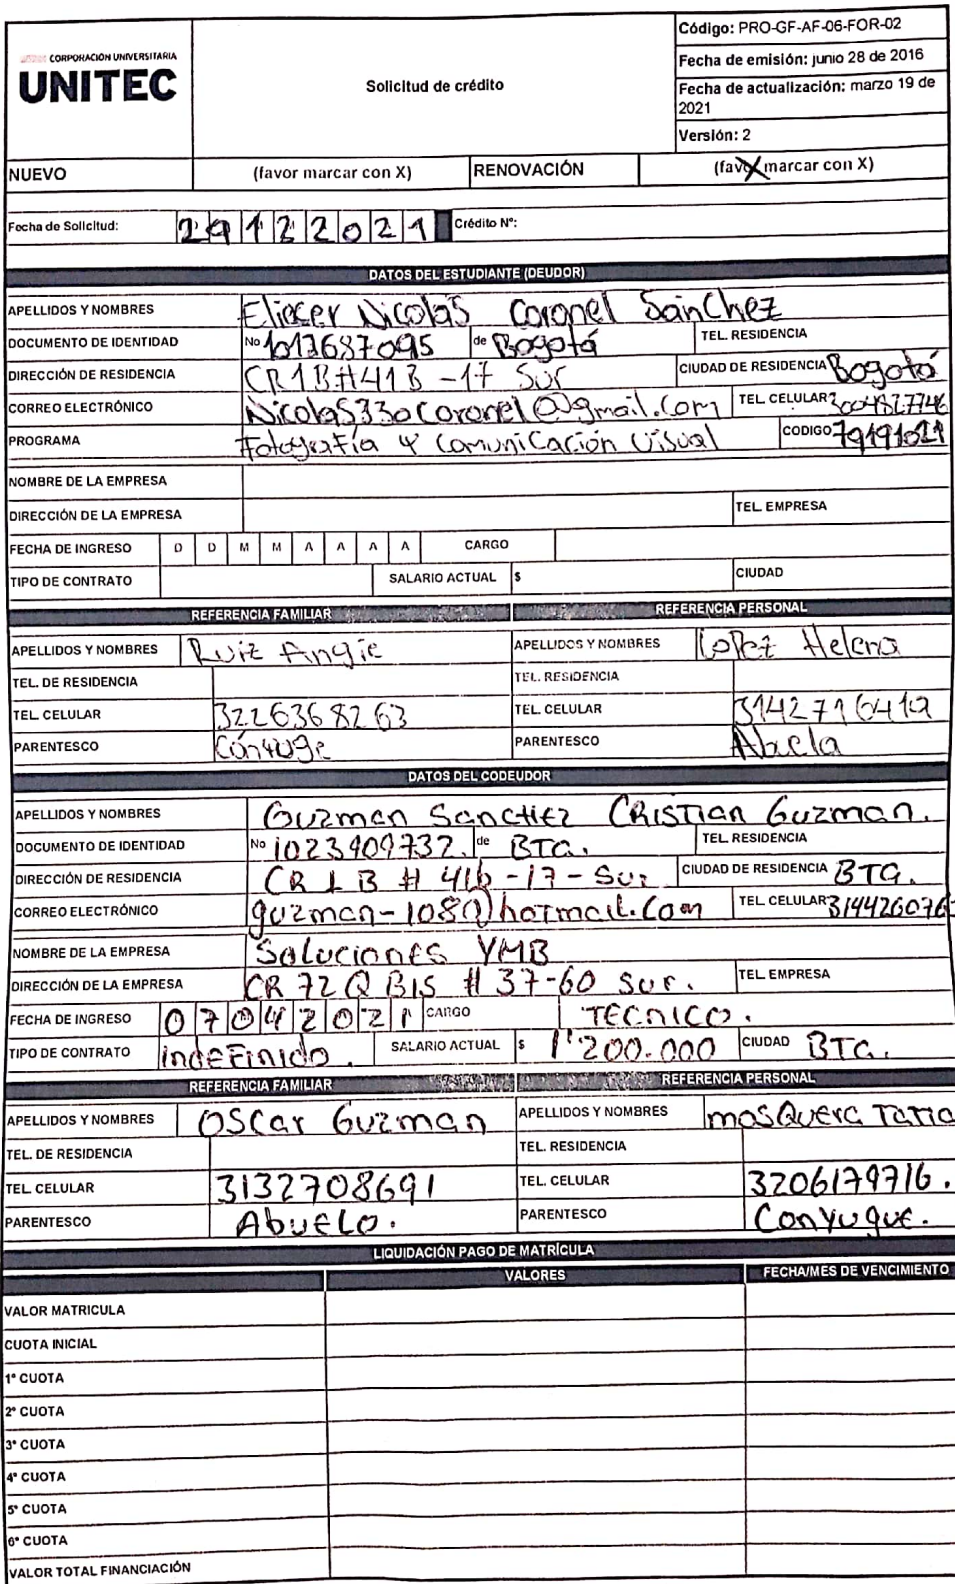 CORPORACIÓN UNIVERSITARIA
UNITEC
Solicitud de crédito
Código: PRO-GF-AF-06-FOR-02
Fecha de emisión: junio 28 de 2016
Fecha de actualización: marzo 19 de 2021
Versión: 2
NUEVO (favor marcar con X) RENOVACIÓN (favor marcar con X) X
Fecha de Solicitud: 29122021 Crédito N°:
DATOS DEL ESTUDIANTE (DEUDOR)
APELLIDOS Y NOMBRES Eliecer Nicolas Coronel Sánchez
DOCUMENTO DE IDENTIDAD No 1013687095 de Bogotá TEL. RESIDENCIA
DIRECCIÓN DE RESIDENCIA CR1B#41B-17 Sur CIUDAD DE RESIDENCIA Bogotá
CORREO ELECTRÓNICO Nicolas330coronel@gmail.com TEL. CELULAR 3004827746
PROGRAMA Fotografía y Comunicación Visual CODIGO 79191021
NOMBRE DE LA EMPRESA
DIRECCIÓN DE LA EMPRESA TEL. EMPRESA
FECHA DE INGRESO D D M M A A A A CARGO
TIPO DE CONTRATO SALARIO ACTUAL $ CIUDAD
REFERENCIA FAMILIAR REFERENCIA PERSONAL
APELLIDOS Y NOMBRES Ruiz Angie APELLIDOS Y NOMBRES Lopez Helena
TEL. DE RESIDENCIA TEL. RESIDENCIA
TEL. CELULAR 3226368263 TEL. CELULAR
PARENTESCO Cónyuge PARENTESCO Abuela
DATOS DEL CODEUDOR
APELLIDOS Y NOMBRES Guzman Sanchez CRISTIAN Guzman.
DOCUMENTO DE IDENTIDAD No 1023909732. de BTG. TEL. RESIDENCIA
DIRECCIÓN DE RESIDENCIA CR 1 B # 41b-17-Sur CIUDAD DE RESIDENCIA BTG.
CORREO ELECTRÓNICO guzman-108@hotmail.com TEL. CELULAR
NOMBRE DE LA EMPRESA Soluciones YMB
DIRECCIÓN DE LA EMPRESA CR 72 Q BIS # 37-60 Sur. TEL. EMPRESA
FECHA DE INGRESO 07042021 CARGO TECNICO.
TIPO DE CONTRATO indefinido. SALARIO ACTUAL $ 1'200.000 CIUDAD BTG.
REFERENCIA FAMILIAR REFERENCIA PERSONAL
APELLIDOS Y NOMBRES OSCar Guzman APELLIDOS Y NOMBRES mosquera
TEL. DE RESIDENCIA TEL. RESIDENCIA
TEL. CELULAR 3132708691 TEL. CELULAR 3206179716.
PARENTESCO Abuelo. PARENTESCO Conyugue.
LIQUIDACIÓN PAGO DE MATRÍCULA
VALORES FECHA/MES DE VENCIMIENTO
VALOR MATRICULA
CUOTA INICIAL
1° CUOTA
2° CUOTA
3° CUOTA
4° CUOTA
5° CUOTA
6° CUOTA
VALOR TOTAL FINANCIACIÓN